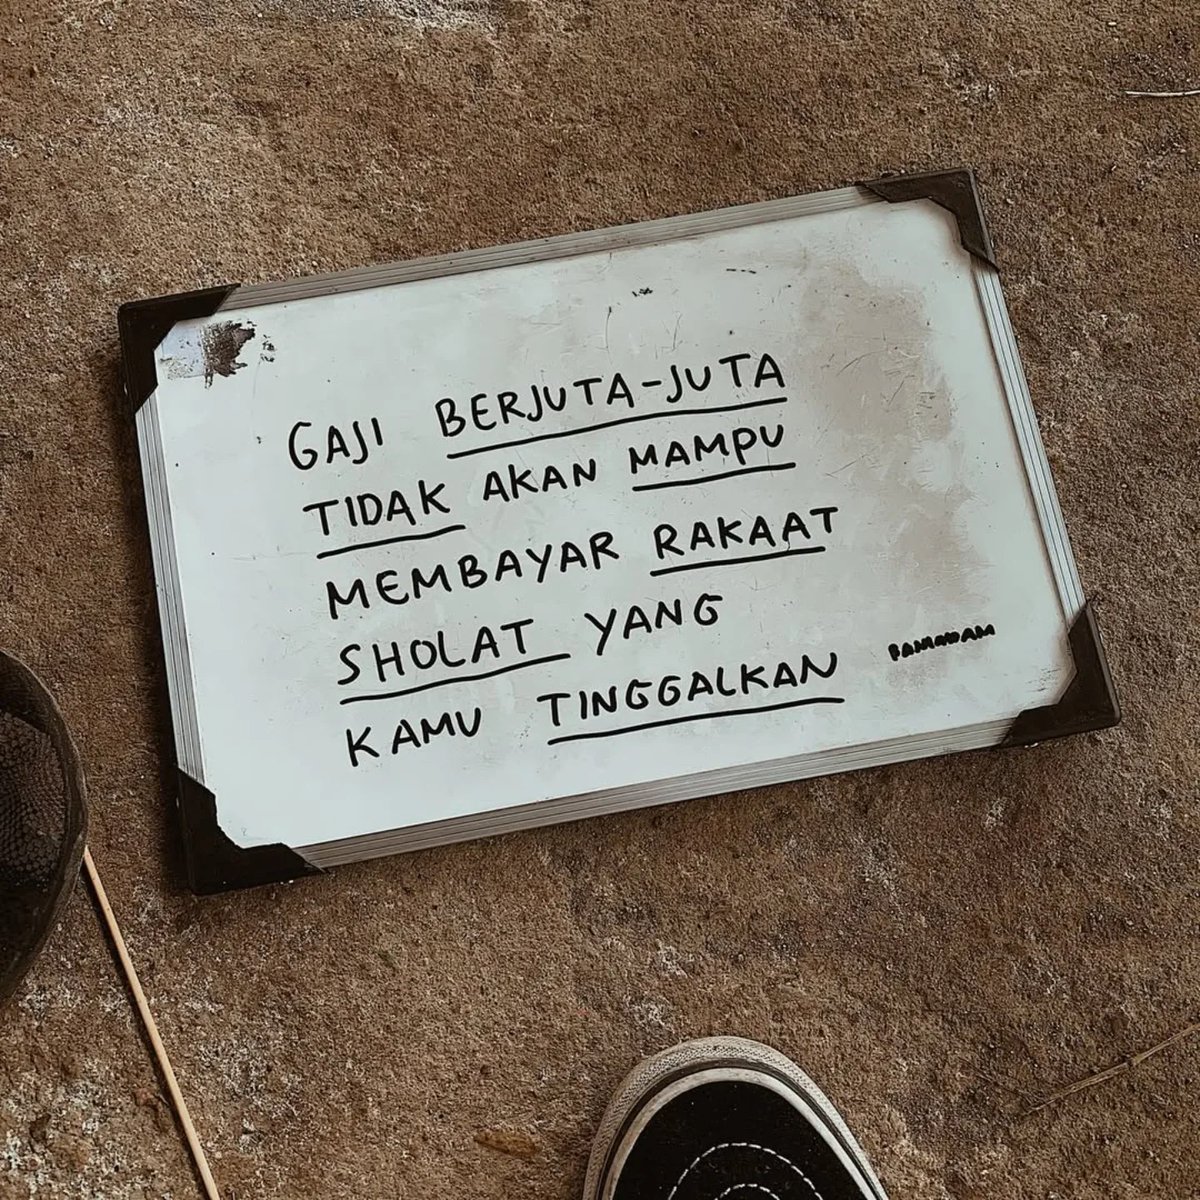 GAJI BERJUTA-JUTA
TIDAK AKAN MAMPU
MEMBAYAR RAKAAT
SHOLAT YANG
KAMU TINGGALKAN